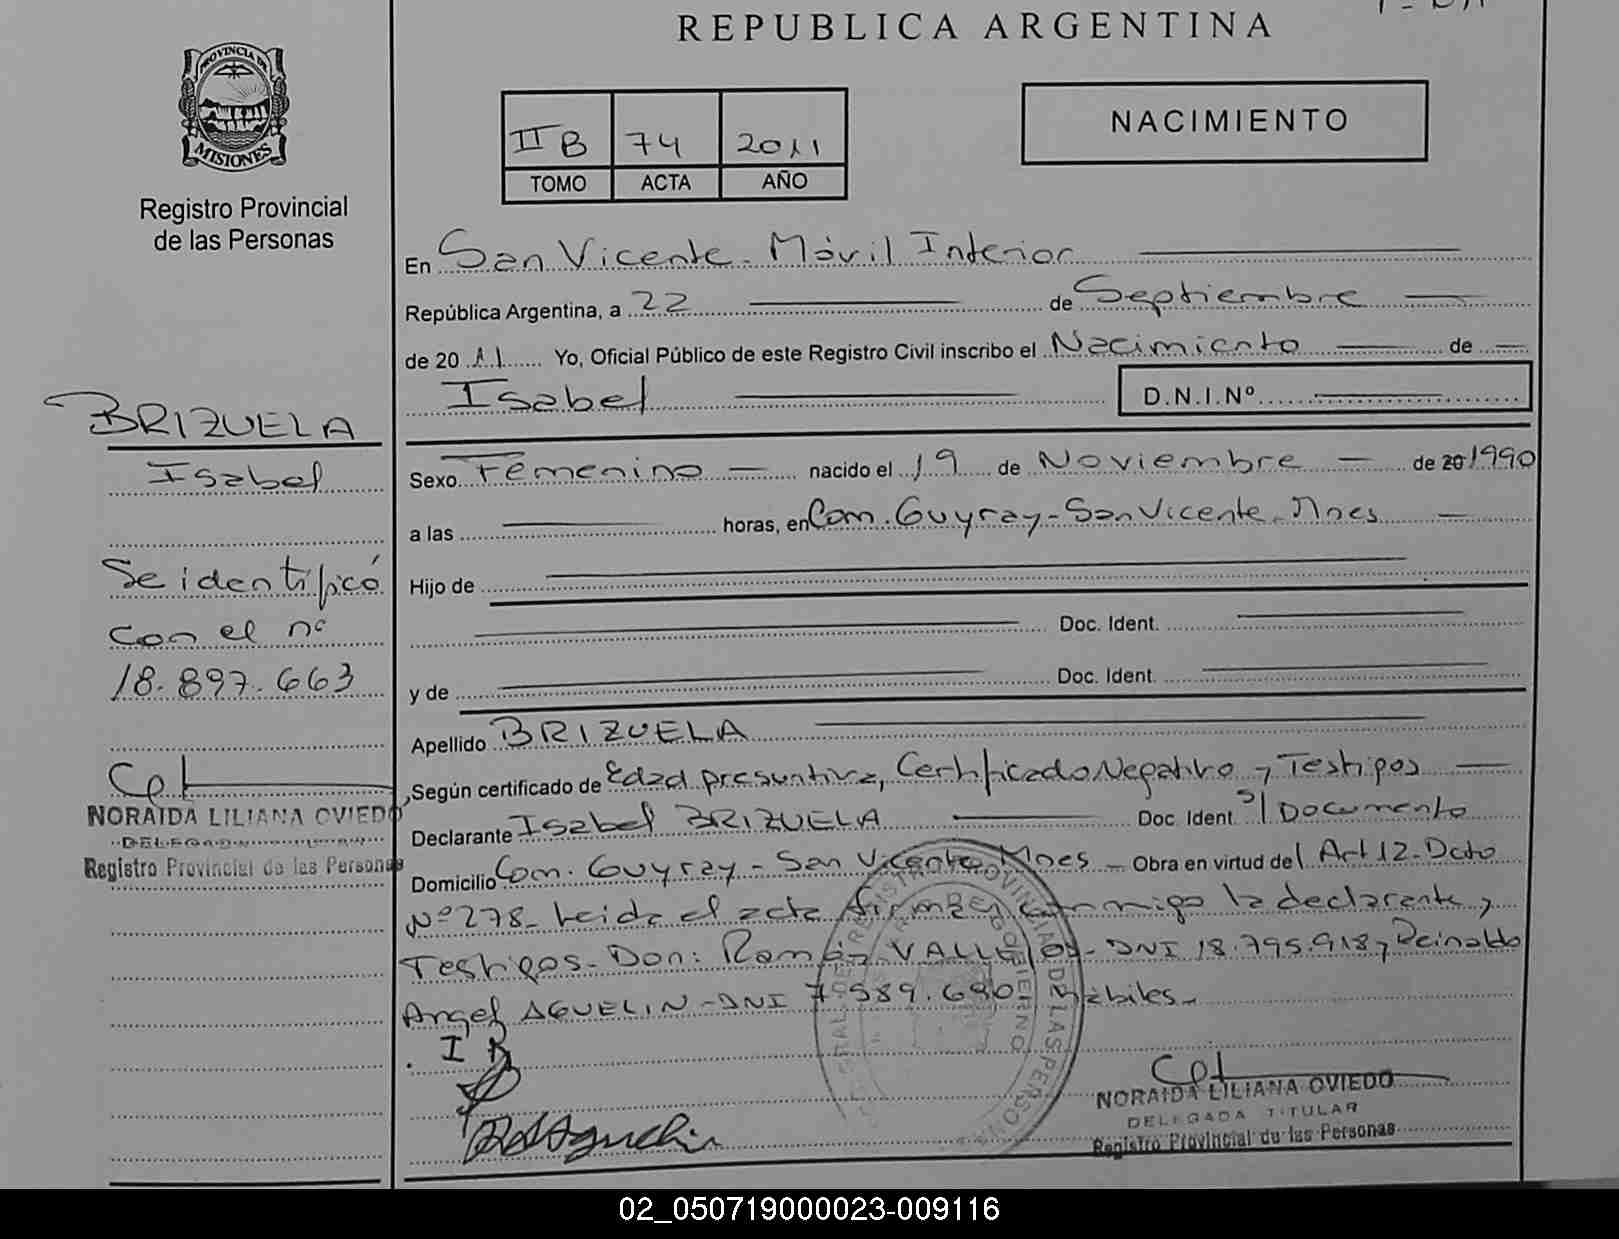 REPUBLICA ARGENTINA
PROVINCIA DE
MISIONES
Registro Provincial
de las Personas
II B 74 2011
TOMO ACTA AÑO
NACIMIENTO
En San Vicente - Móvil Interior
República Argentina, a 22 de Septiembre
de 20 11 Yo, Oficial Público de este Registro Civil inscribo el Nacimiento de
Isabel D.N.I.Nº
BRIZUELA
Isabel
Se identificó
con el nº
18.897.663
NORAIDA LILIANA OVIEDO
DELEGADA
Registro Provincial de las Personas
Sexo Femenino nacido el 19 de Noviembre de 20 1990
a las horas, en Com. Guyray - San Vicente - Mnes
Hijo de
Doc. Ident.
y de Doc. Ident.
Apellido BRIZUELA
Según certificado de Edad presuntiva, Certificado Negativo y Testigos
Declarante Isabel BRIZUELA Doc. Ident. S/ Documento
Domicilio Com. Guyray - San Vicente - Mnes - Obra en virtud del Art 12 - Dcto
Nº 278 - Leída el acta firman conmigo la declarante y
Testigos - Don: Ramón VALLEJOS - DNI 18.795.918 y Reinaldo
Angel AGUELIN - DNI 7.589.690 - Hábiles -
I B
NORAIDA LILIANA OVIEDO
DELEGADA TITULAR
Registro Provincial de las Personas
02_050719000023-009116